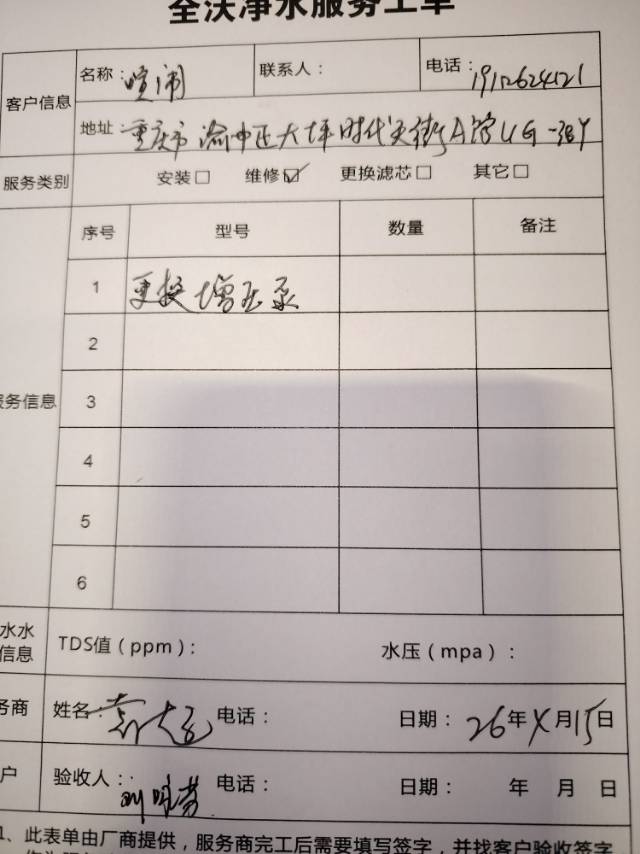 全沃净水服务工单
客户信息
名称：喧闹 联系人： 电话：19112624121
地址：重庆市渝中区大坪时代天街A馆LG-38Y
服务类别 安装□ 维修☑ 更换滤芯□ 其它□
序号 型号 数量 备注
1 更换增压泵
2
务信息 3
4
5
6
水水
信息
TDS值（ppm）： 水压（mpa）：
务商 姓名： 电话： 日期：26年4月15日
户 验收人： 电话： 日期： 年 月 日
1、此表单由厂商提供，服务商完工后需要填写签字，并找客户验收签字